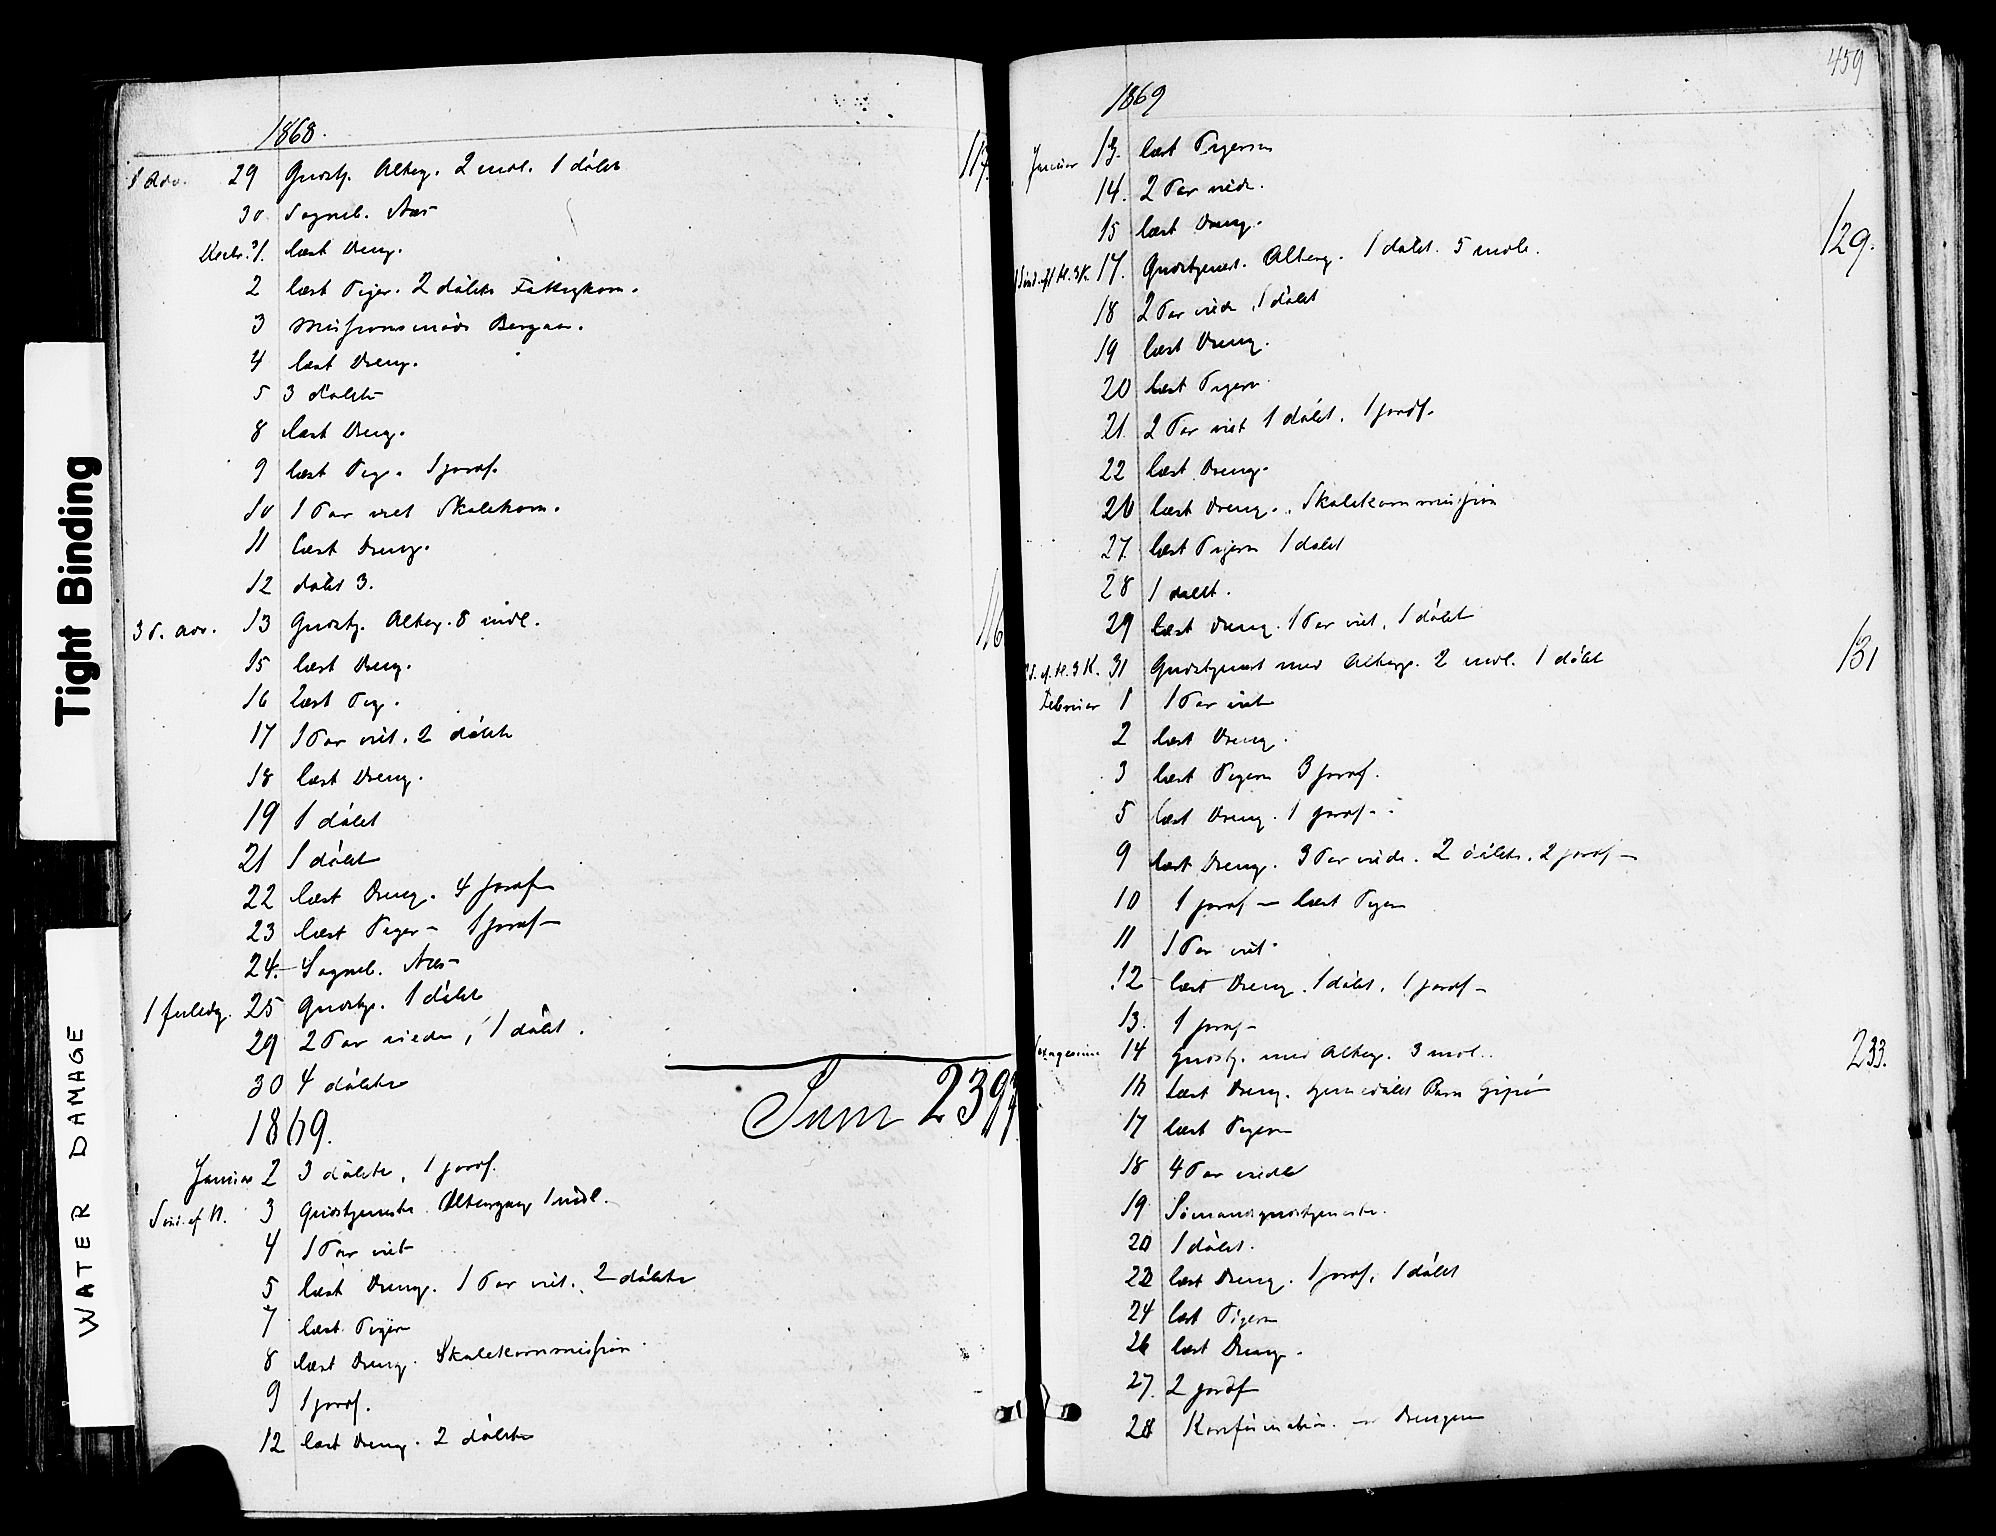 1868.
1 Adv. 29 Gudstj. Alterg. 2 indl. 1 døbt 117.
30 Sogneb. Næs
Decbr. 1. læst Dreng.
2 læst Piger. 2 døbte Fattigkom.
3 Missionsmøde Bergan.
4 læst Dreng.
5 3 døbte
8 læst Dreng.
9 læst Pig. 1 jordf.
10 1 Par viet Skolekom.
11 læst Dreng.
12 døbt 3.
3 S. Adv. 13 Gudstj. Alterg. 8 indl. 116
15 læst Dreng.
16 læst Pig.
17 1 Par viet. 2 døbte
18 læst Dreng.
19 1 døbt
21 1 døbt
22 læst Dreng. 4 jordf
23 læst Piger 1 jordf
24. Sogneb. Næs
1 Juledg. 25 Gudstj. 1 døbt
29 2 Par viede, 1 døbt.
30 4 døbte
Sum 239
1869.
Januar 2 3 døbte, 1 jordf.
Sønd. ef N. 3 Gudstjeneste. Altergang 1 indl.
4 1 Par viet
5 læst Dreng. 1 Par viet. 2 døbte
7 læst Piger
8 læst Dreng. Skolekommission.
9 1 jordf.
12 læst Dreng. 2 døbte
459
1869
Januar 13. læst Pigerne
14. 2 Par viede.
15 læst Dreng.
1 Sønd. eft H. 3 K. 17. Gudstjenest. Alterg. 1 døbt. 5 indl. 129.
18 2 Par viede, 1 døbt
19 læst Dreng.
20 læst Pigern
21. 2 Par viet 1 døbt. 1 jordf.
22 læst Dreng.
26 læst Dreng. Skolekommission
27. læst Pigern 1 døbt
28 1 døbt.
29 læst Dreng. 1 Par viet, 1 døbt
S. ef. H. 3 K. 31 Gudstjenest med Alterg. 2 indl. 1 døbt 131
Februar 1 1 Par viet
2 læst Dreng.
3 læst Pigern 3 jordf.
5 læst Dreng. 1 jordf.
9 læst Dreng. 3 Par viede. 2 døbte. 2 jordf
10 1 jordf læst Pigern
11 1 Par viet
12 læst Dreng. 1 døbt. 1 jordf
13. 1 jordf
Sexagesima 14 Gudstj. med Alterg. 3 indl. 233.
16 læst Dreng. hjemedøbt Barn
17 læst Pigern
18 4 Par viede
19 Sømandsgudstjeneste.
20 1 døbt.
22 læst Dreng. 1 jordf. 1 døbt
24 læst Pigern
26 læst Dreng.
27. 2 jordf
28 Konfirmation. Drengene
Tight Binding
WATER DAMAGE